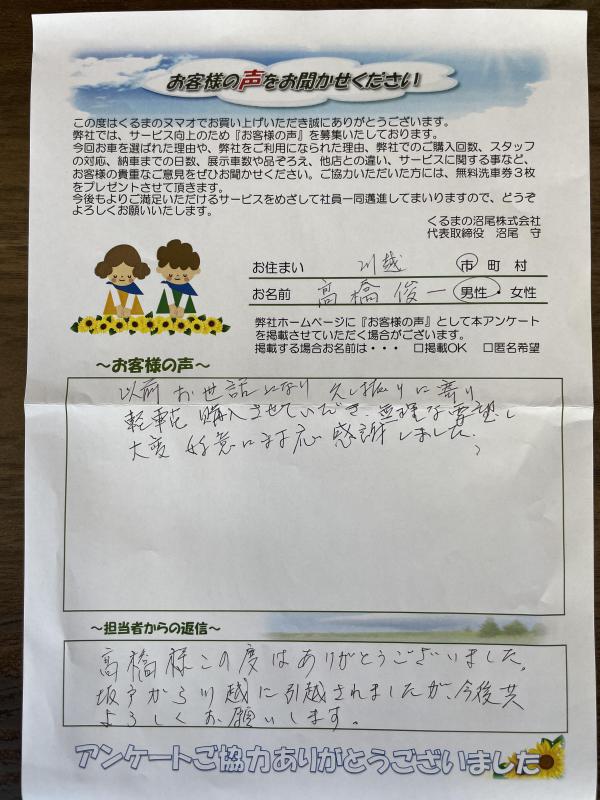 お客様の声をお聞かせください
この度はくるまのヌマオでお買い上げいただき誠にありがとうございます。
弊社では、サービス向上のため『お客様の声』を募集いたしております。
今回お車を選ばれた理由や、弊社をご利用になられた理由、弊社でのご購入回数、スタッフ
の対応、納車までの日数、展示車数や品ぞろえ、他店との違い、サービスに関する事など、
お客様の貴重なご意見をぜひお聞かせください。ご協力いただいた方には、無料洗車券3枚
をプレゼントさせて頂きます。
今後もよりご満足いただけるサービスをめざして社員一同邁進してまいりますので、どうぞ
よろしくお願いいたします。
くるまの沼尾株式会社
代表取締役 沼尾 守
お住まい 川越 市 町 村
お名前 高橋俊一 男性・女性
弊社ホームページに『お客様の声』として本アンケート
を掲載させていただく場合がございます。
掲載する場合お名前は・・・ □掲載OK □匿名希望
～お客様の声～
以前お世話になり 久し振りに寄り
軽車を購入させていただき、無理な要望し
大変 感謝しました
～担当者からの返信～
高橋様この度はありがとうございました。
坂戸から川越に引越されましたが、今後共
よろしくお願いします。
アンケートご協力ありがとうございました